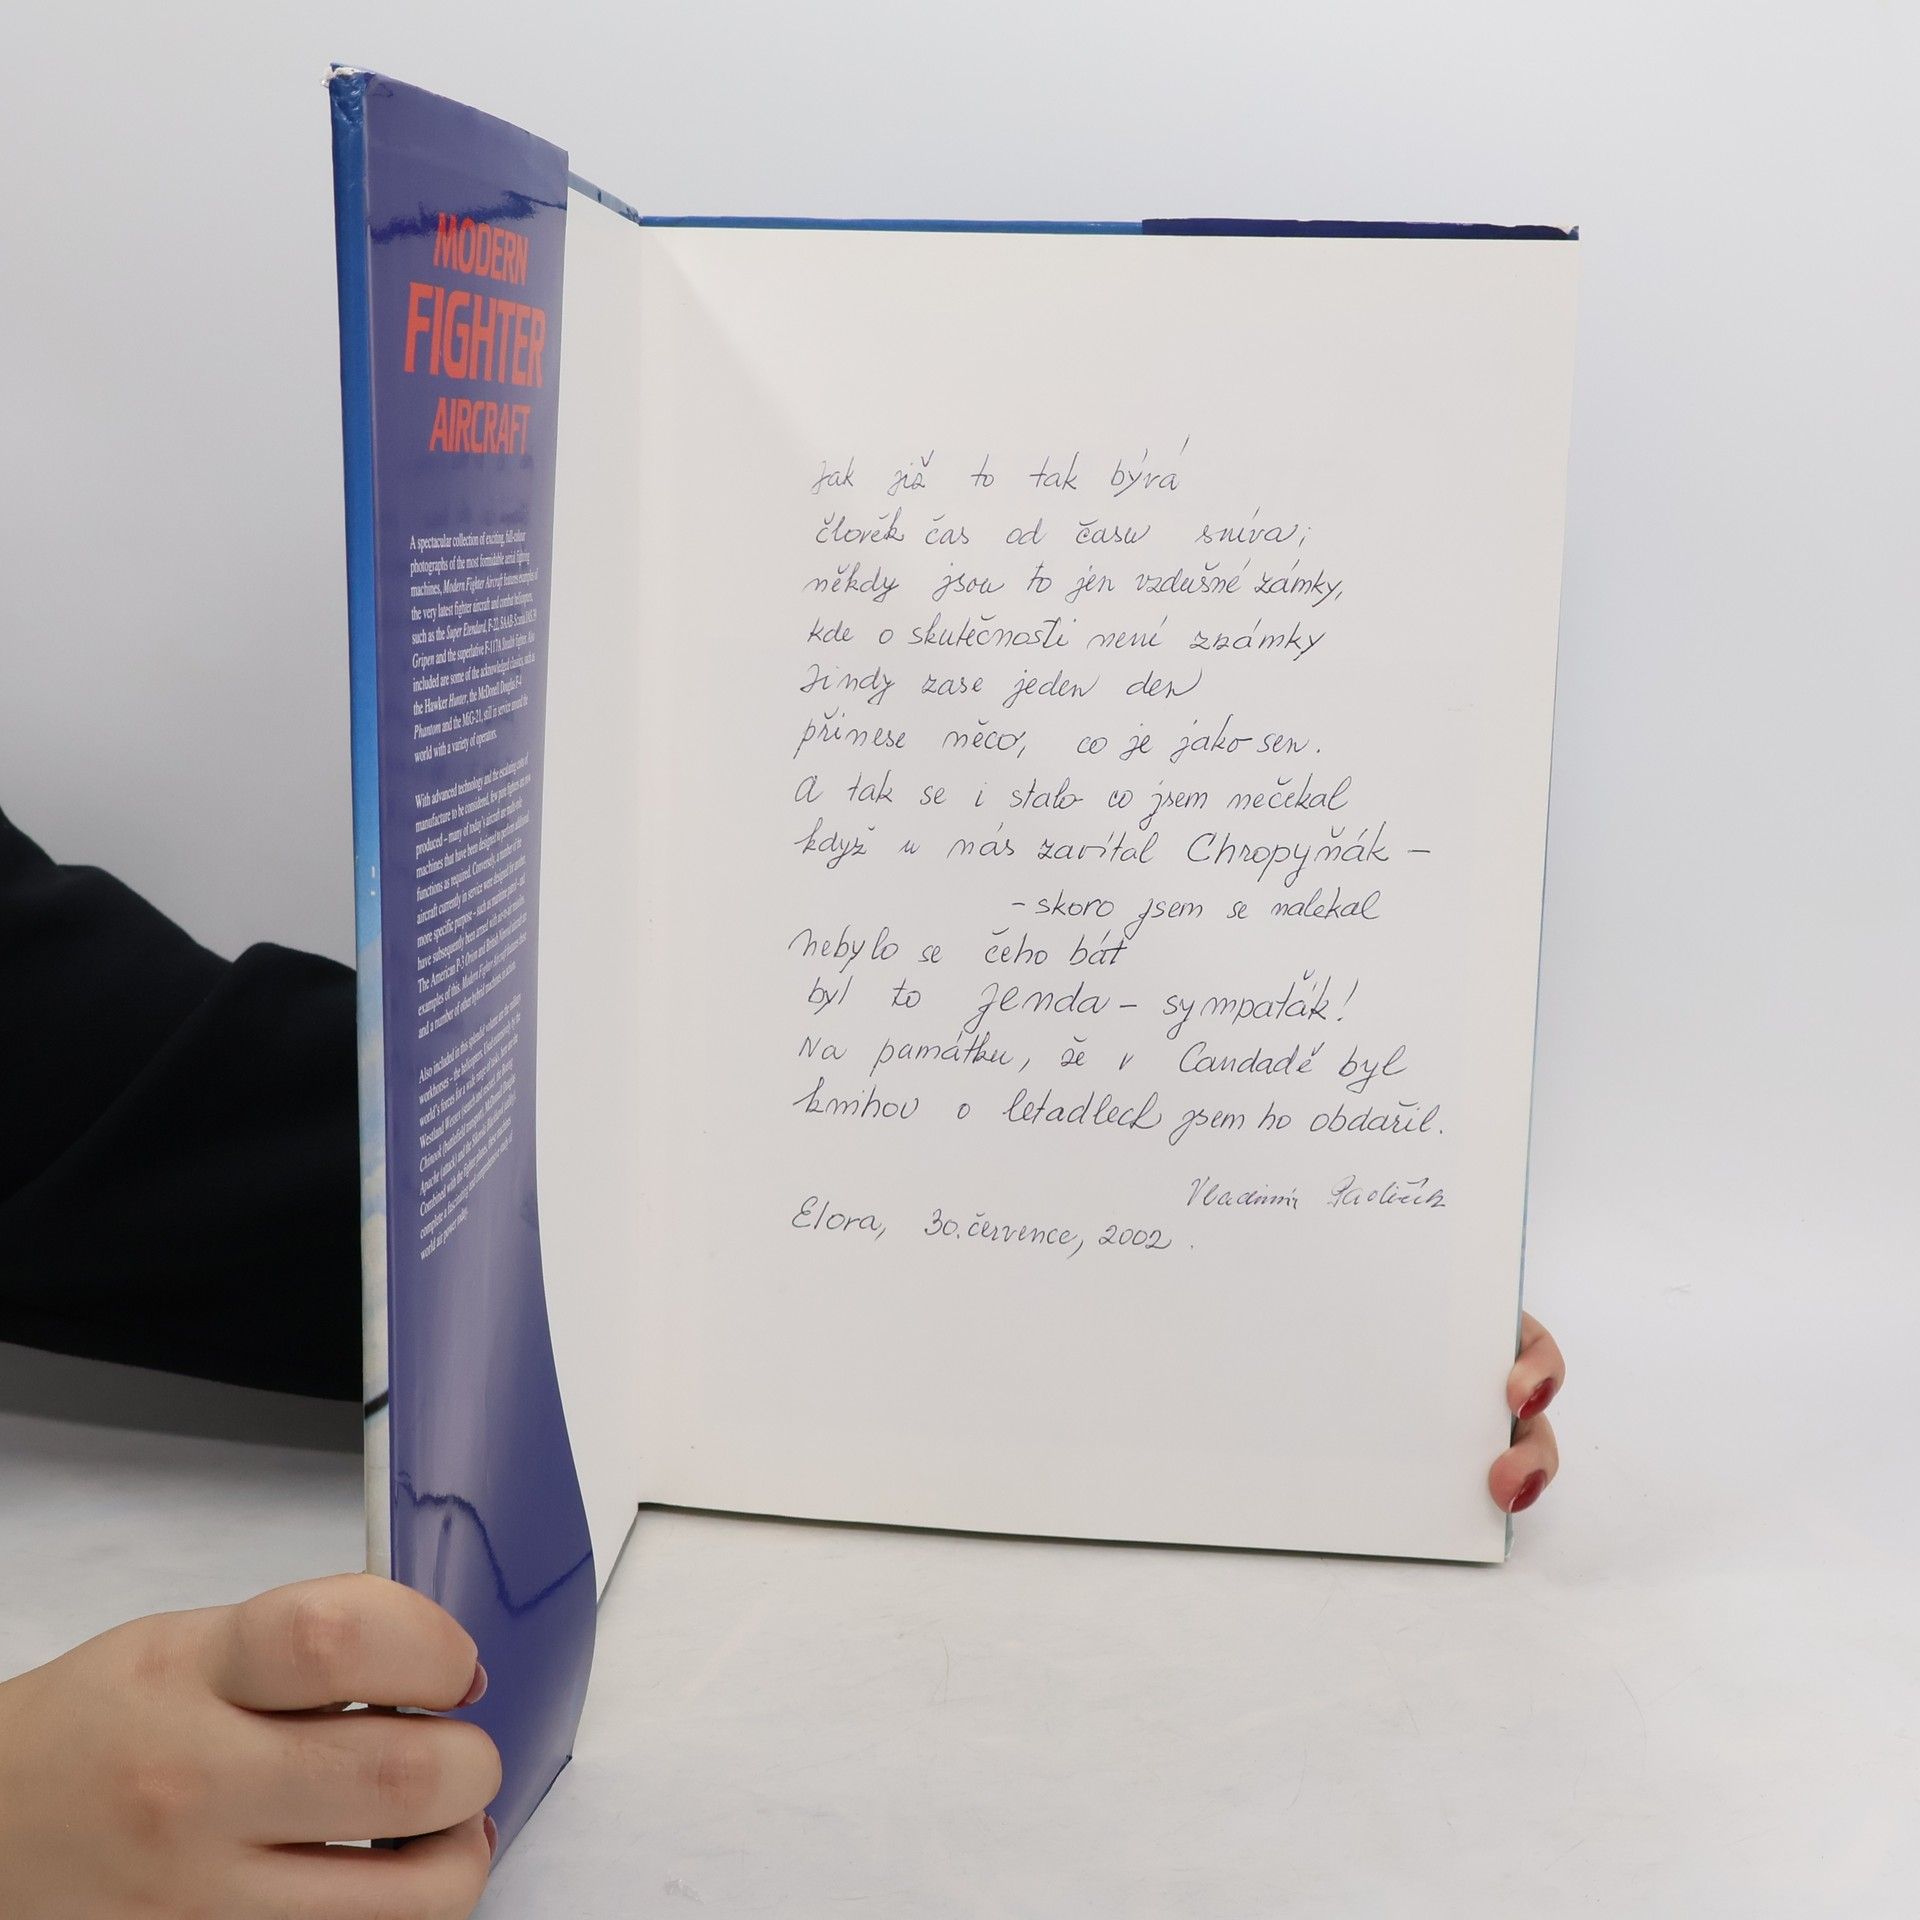 MODERN
FIGHTER
AIRCRAFT
A spectacular collection of exciting, full-colour
photographs of the most formidable aerial fighting
machines, Modern Fighter Aircraft features examples of
the very latest fighter aircraft and combat helicopters,
such as the Super Etendard, F-22, SAAB-Scania JAS 39
Gripen and the superlative F-117A Stealth fighter. Also
included are some of the acknowledged classics, such as
the Hawker Hunter, the McDonnell Douglas F-4
Phantom and the MiG-21, still in service around the
world with a variety of operators.
With advanced technology and the escalating costs of
manufacture to be considered, few pure fighters are now
produced – many of today's aircraft are multi-role
machines that have been designed to perform additional
functions as required. Conversely, a number of the
aircraft currently in service were designed for another,
more specific purpose – such as maritime patrol – and
have subsequently been armed with air-to-air missiles.
The American P-3 Orion and British Nimrod aircraft are
examples of this. Modern Fighter Aircraft features these
and a number of other hybrid machines in action.
Also included in this splendid volume are the military
workhorses – the helicopters. Used extensively by the
world's forces for a wide range of tasks, here are the
Westland Wessex (search and rescue), the Boeing
Chinook (battlefield transport), McDonnell Douglas
Apache (attack) and the Sikorski Blackhawk (utility).
Combined with the fighter planes, these machines
complete a fascinating and comprehensive study of
world air power today.
Jak již to tak bývá
člověk čas od času snívá;
někdy jsou to jen vzdušné zámky,
kde o skutečnosti není známky
Jindy zase jeden den
přinese něco, co je jako sen.
A tak se i stalo co jsem nečekal
když u nás zavítal Chropyňák –
– skoro jsem se nalekal
nebylo se čeho bát
byl to Jenda – sympaťák!
Na památku, že v Candadě byl
knihou o letadlech jsem ho obdařil.
Vladimír
Elora, 30. července, 2002.